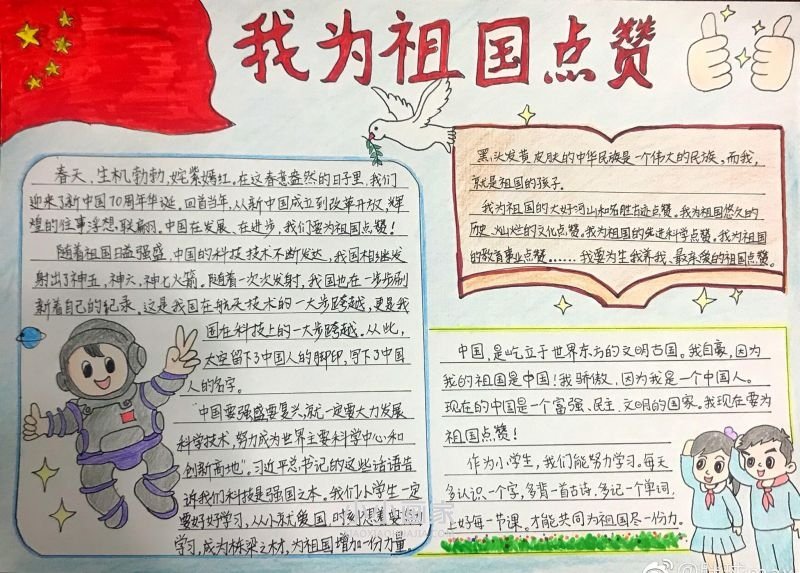 我为祖国点赞
春天,生机勃勃,姹紫嫣红。在这春意盎然的日子里,我们
迎来了新中国70周年华诞。回首当年,从新中国成立到改革开放,辉
煌的往事浮想联翩。中国在发展、在进步,我们要为祖国点赞!
随着祖国日益强盛,中国的科技技术不断发达,我国相继发
射出了神五,神六,神七火箭。随着一次次发射,我国也在一步步刷
新着自己的纪录。这是我国在航天技术的一大步跨越,更是我
国在科技上的一大步跨越。从此,
太空留下了中国人的脚印,写下了中国
人的名字。
“中国要强盛要复兴,就一定要大力发展
科学技术,努力成为世界主要科学中心和
创新高地”。习近平总书记的这些话语告
诉我们科技是强国之本。我们小学生一定
要好好学习,从小就爱国,时刻
学习,成为栋梁之材,为祖国增加一份力量。
黑头发黄皮肤的中华民族是一个伟大的民族,而我,
就是祖国的孩子。
我为祖国的大好河山和名胜古迹点赞。我为祖国悠久的
历史、灿烂的文化点赞。我为祖国的先进科学点赞。我为祖国
的教育事业点赞……我要为生我养我、最亲爱的祖国点赞。
中国,是屹立于世界东方的文明古国。我自豪,因为
我的祖国是中国!我骄傲,因为我是一个中国人。
现在的中国是一个富强、民主、文明的国家。我现在要为
祖国点赞!
作为小学生,我们能努力学习。每天
多认识一个字,多背一首古诗,多记一个单词,
上好每一节课。才能共同为祖国尽一份力。